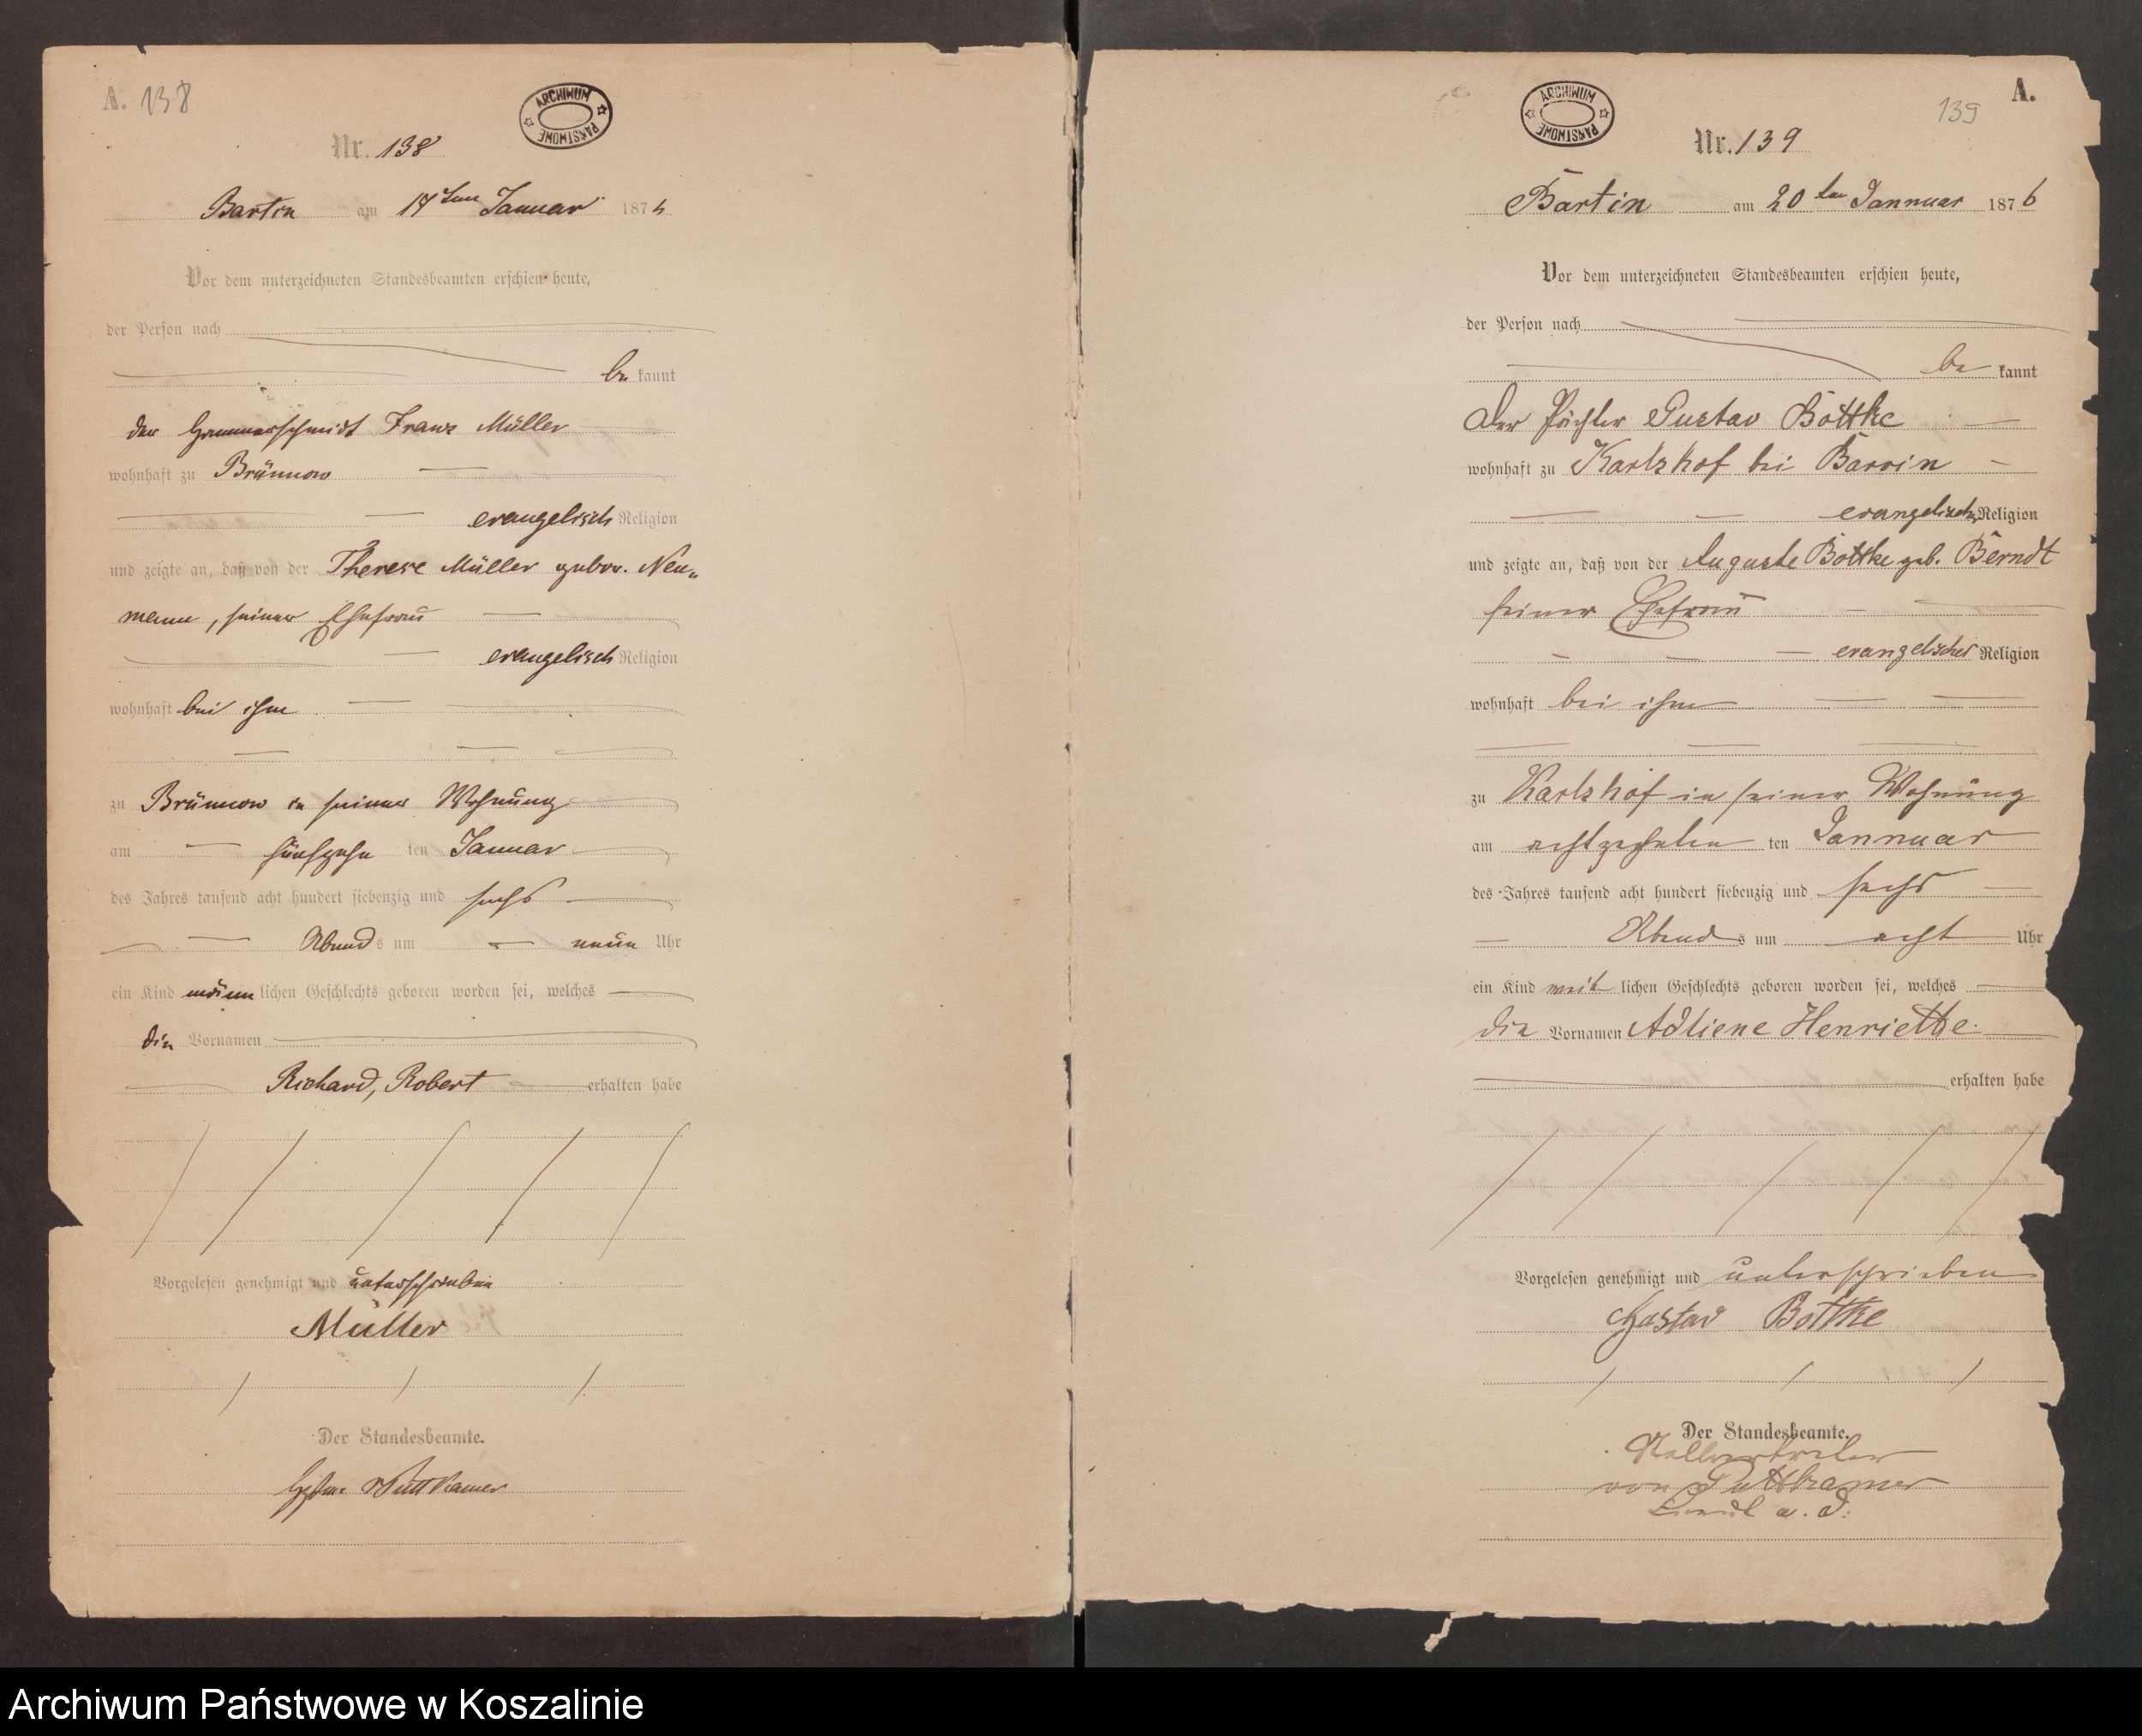 A. 138
ARCHIWUM PAŃSTWOWE
Nr. 138
Bartin am 17ten Januar 1876
Vor dem unterzeichneten Standesbeamten erschien heute,
der Person nach
be kannt
der Hammerschmidt Franz Müller
wohnhaft zu Brünnow
evangelisch Religion
und zeigte an, daß von der Therese Müller gebor. Neu-
mann, seiner Ehefrau
evangelisch Religion
wohnhaft bei ihm
zu Brünnow in seiner Wohnung
am fünfzehn ten Januar
des Jahres tausend acht hundert siebenzig und sechs
Abends um neun Uhr
ein Kind männlichen Geschlechts geboren worden sei, welches
die Vornamen
Richard, Robert erhalten habe
Vorgelesen genehmigt und unterschrieben
Müller
Der Standesbeamte.
Puttkamer
A.
139
ARCHIWUM PAŃSTWOWE
Nr. 139
Bartin am 20ten Jannuar 1876
Vor dem unterzeichneten Standesbeamten erschien heute,
der Person nach
be kannt
Der Pächter Gustav Bottke
wohnhaft zu Karlshof bei Barvin
evangelischer Religion
und zeigte an, daß von der Auguste Bottke geb. Berndt
seiner Ehefrau
evangelischer Religion
wohnhaft bei ihm
zu Karlshof in seiner Wohnung
am achtzehnten ten Jannuar
des Jahres tausend acht hundert siebenzig und sechs
Abends um acht Uhr
ein Kind weiblichen Geschlechts geboren worden sei, welches
die Vornamen Adliene Henriette
erhalten habe
Vorgelesen genehmigt und unterschrieben
Gustav Bottke
Der Standesbeamte.
Stellvertreter
von Puttkamer
a. D.
Archiwum Państwowe w Koszalinie